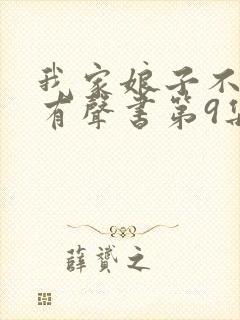 我家娘子不
有聲书第9集
薛贇之